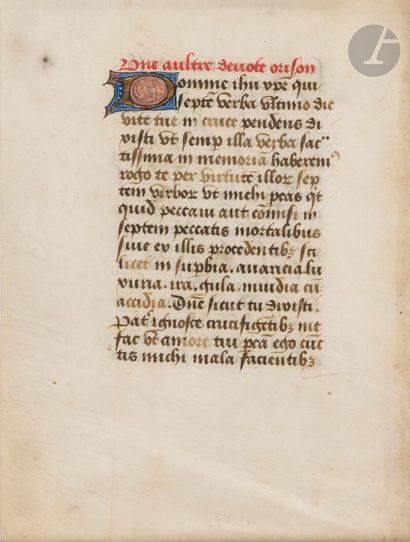 Une aultre devote orison
Domine ihu xpe qui
septe verba ultimo die
vite tue in cruce pendens di
xisti ut semp illa verba sac
tissima in memoriã haberem
rogo te per virtute illor sep
tem verbor ut michi pcas qt
quid peccavi aut comisi in
septem peccatis mortalibus
sive ex illis procedentibz sci
licet in supbia. avaricia lu
xuria. ira. gula. invidia cũ
accidia. Dñe sicut tu dixisti.
Pat ignosce crucifigetibz me
fac ut amore tui pcã ego cũc
tis michi mala facientibz